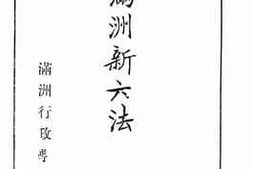 滿洲新六法
滿洲行政學